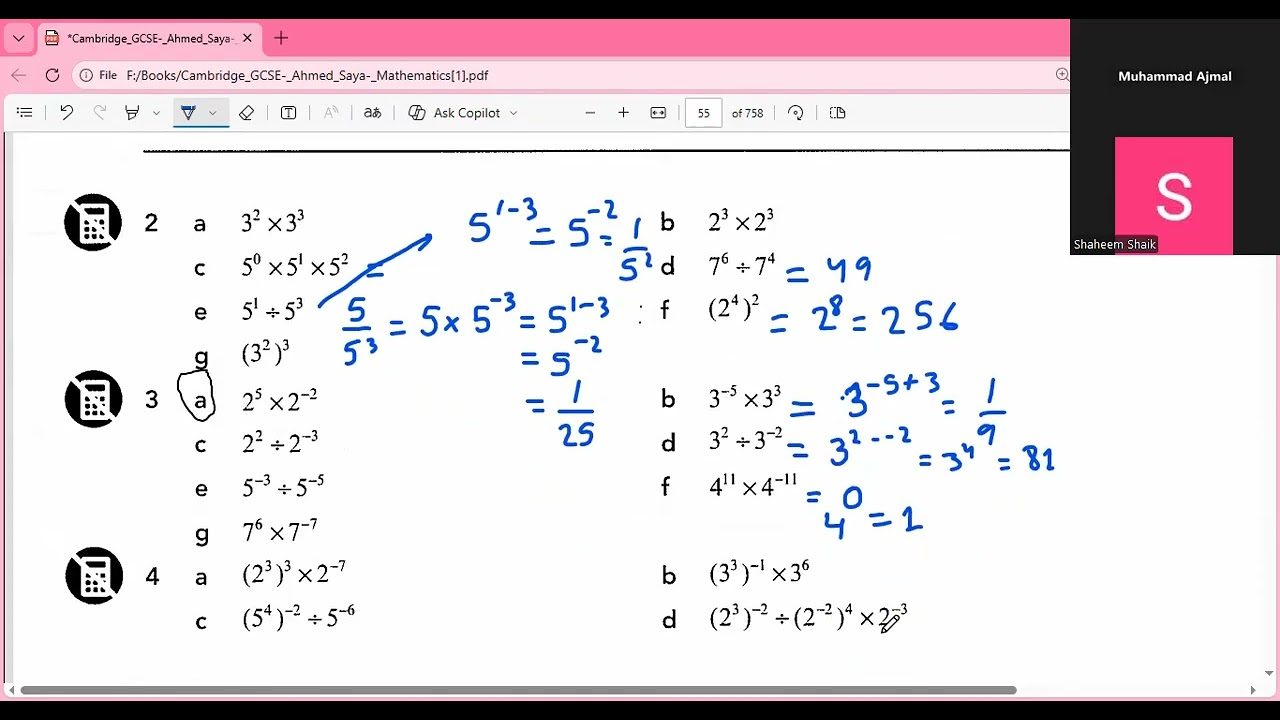 *Cambridge_GCSE-_Ahmed_Saya-
File F:/Books/Cambridge_GCSE-_Ahmed_Saya-_Mathematics[1].pdf
Ask Copilot 55 of 758
Muhammad Ajmal
S
Shaheem Shaik
2 a 3² × 3³
5¹⁻³ = 5⁻² = 1/5²
b 2³ × 2³
c 5⁰ × 5¹ × 5² =
d 7⁶ ÷ 7⁴ = 49
e 5¹ ÷ 5³
5/5³ = 5 × 5⁻³ = 5¹⁻³
= 5⁻²
= 1/25
f (2⁴)² = 2⁸ = 256
g (3²)³
3 a 2⁵ × 2⁻²
b 3⁻⁵ × 3³ = 3⁻⁵⁺³ = 1/9
c 2² ÷ 2⁻³
d 3² ÷ 3⁻² = 3²⁻⁻² = 3⁴ = 81
e 5⁻³ ÷ 5⁻⁵
f 4¹¹ × 4⁻¹¹ = 4⁰ = 1
g 7⁶ × 7⁻⁷
4 a (2³)³ × 2⁻⁷
b (3³)⁻¹ × 3⁶
c (5⁴)⁻² ÷ 5⁻⁶
d (2³)⁻² ÷ (2⁻²)⁴ × 2⁻³